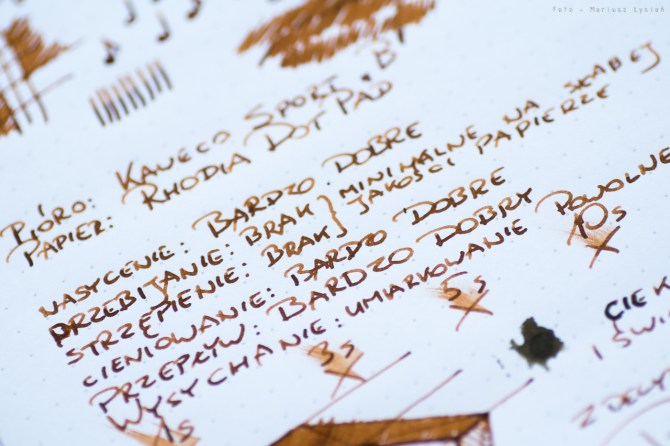 Foto - Mariusz Łysiak
PIÓRO: KAWECO SPORT, B
PAPIER: RHODIA DOT PAD
NASYCENIE: BARDZO DOBRE
PRZEBIJANIE: BRAK } MINIMALNE NA SŁABEJ
STRZĘPIENIE: BRAK } JAKOŚCI PAPIERZE
CIENIOWANIE: BARDZO DOBRE
PRZEPŁYW: BARDZO DOBRY
WYSYCHANIE: UMIARKOWANIE POWOLNE
1s 3s 5s 10s
CIEK
I ŚWI
Z DELI